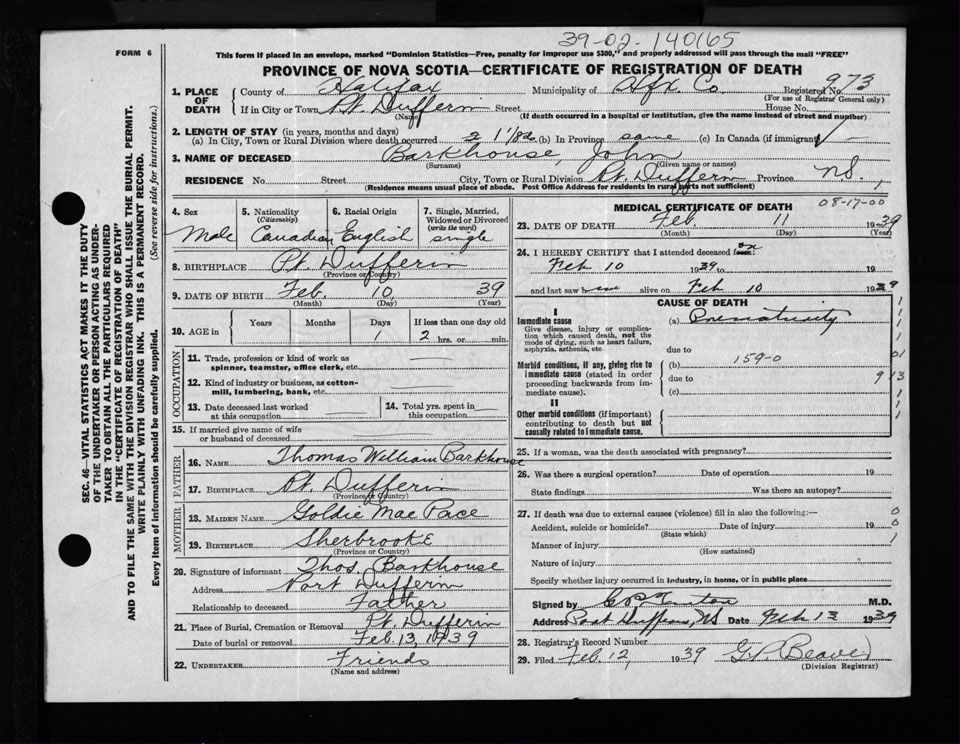 39-02-140165
FORM 6
This form if placed in an envelope, marked "Dominion Statistics—Free, penalty for improper use $300," and properly addressed will pass through the mail "FREE"
PROVINCE OF NOVA SCOTIA—CERTIFICATE OF REGISTRATION OF DEATH
1. PLACE OF DEATH
County of Halifax Municipality of Hfx. Co. Registered No. 973
(For use of Registrar General only)
If in City or Town Pt. Dufferin Street House No.
(Name) (If death occurred in a hospital or institution, give the name instead of street and number)
2. LENGTH OF STAY (in years, months and days)
(a) In City, Town or Rural Division where death occurred (b) In Province same (c) In Canada (if immigrant)
3. NAME OF DECEASED Barkhouse, John
(Surname) (Given name or names)
RESIDENCE No. Street City, Town or Rural Division Pt. Dufferin Province N.S.
(Residence means usual place of abode. Post Office Address for residents in rural parts not sufficient)
4. Sex Male
5. Nationality (Citizenship) Canadian
6. Racial Origin English
7. Single, Married, Widowed or Divorced (write the word) single
8. BIRTHPLACE Pt. Dufferin
(Province or Country)
9. DATE OF BIRTH Feb. 10 39
(Month) (Day) (Year)
10. AGE in Years Months Days 1 If less than one day old 2 hrs. or min.
OCCUPATION
11. Trade, profession or kind of work as spinner, teamster, office clerk, etc.
12. Kind of industry or business, as cotton-mill, lumbering, bank, etc.
13. Date deceased last worked at this occupation
14. Total yrs. spent in this occupation
15. If married give name of wife or husband of deceased
FATHER
16. NAME Thomas William Barkhouse
17. BIRTHPLACE Pt. Dufferin
(Province or Country)
MOTHER
18. MAIDEN NAME Goldie Mae Pace
19. BIRTHPLACE Sherbrooke
(Province or Country)
20. Signature of informant Thos. Barkhouse
Address Port Dufferin
Relationship to deceased Father
21. Place of Burial, Cremation or Removal Pt. Dufferin
Date of burial or removal Feb. 13, 1939
22. UNDERTAKER Friends
(Name and address)
MEDICAL CERTIFICATE OF DEATH 08-17-00
23. DATE OF DEATH Feb. 11 1939
(Month) (Day) (Year)
24. I HEREBY CERTIFY that I attended deceased from on
Feb 10 1939 to 19
and last saw him alive on Feb 10 1939
CAUSE OF DEATH
I
Immediate cause
Give disease, injury or complication which caused death, not the mode of dying, such as heart failure, asphyxia, asthenia, etc.
(a) Prematurity
due to
Morbid conditions, if any, giving rise to immediate cause (stated in order proceeding backwards from immediate cause).
(b) 159-0
due to
(c)
II
Other morbid conditions (if important) contributing to death but not causally related to immediate cause.
25. If a woman, was the death associated with pregnancy?
26. Was there a surgical operation? Date of operation 19
State findings Was there an autopsy?
27. If death was due to external causes (violence) fill in also the following:—
Accident, suicide or homicide? Date of injury 19
(State which)
Manner of injury
(How sustained)
Nature of injury
Specify whether injury occurred in industry, in home, or in public place
Signed by M.D.
Address Port Dufferin, NS Date Feb 13 1939
28. Registrar's Record Number
29. Filed Feb 12, 1939 G.P. Beaver
(Division Registrar)
SEC. 46—VITAL STATISTICS ACT MAKES IT THE DUTY
OF THE UNDERTAKER OR PERSON ACTING AS UNDER-
TAKER TO OBTAIN ALL THE PARTICULARS REQUIRED
IN THE "CERTIFICATE OF REGISTRATION OF DEATH"
AND TO FILE THE SAME WITH THE DIVISION REGISTRAR WHO SHALL ISSUE THE BURIAL PERMIT.
WRITE PLAINLY WITH UNFADING INK. THIS IS A PERMANENT RECORD.
Every item of information should be carefully supplied. (See reverse side for instructions.)